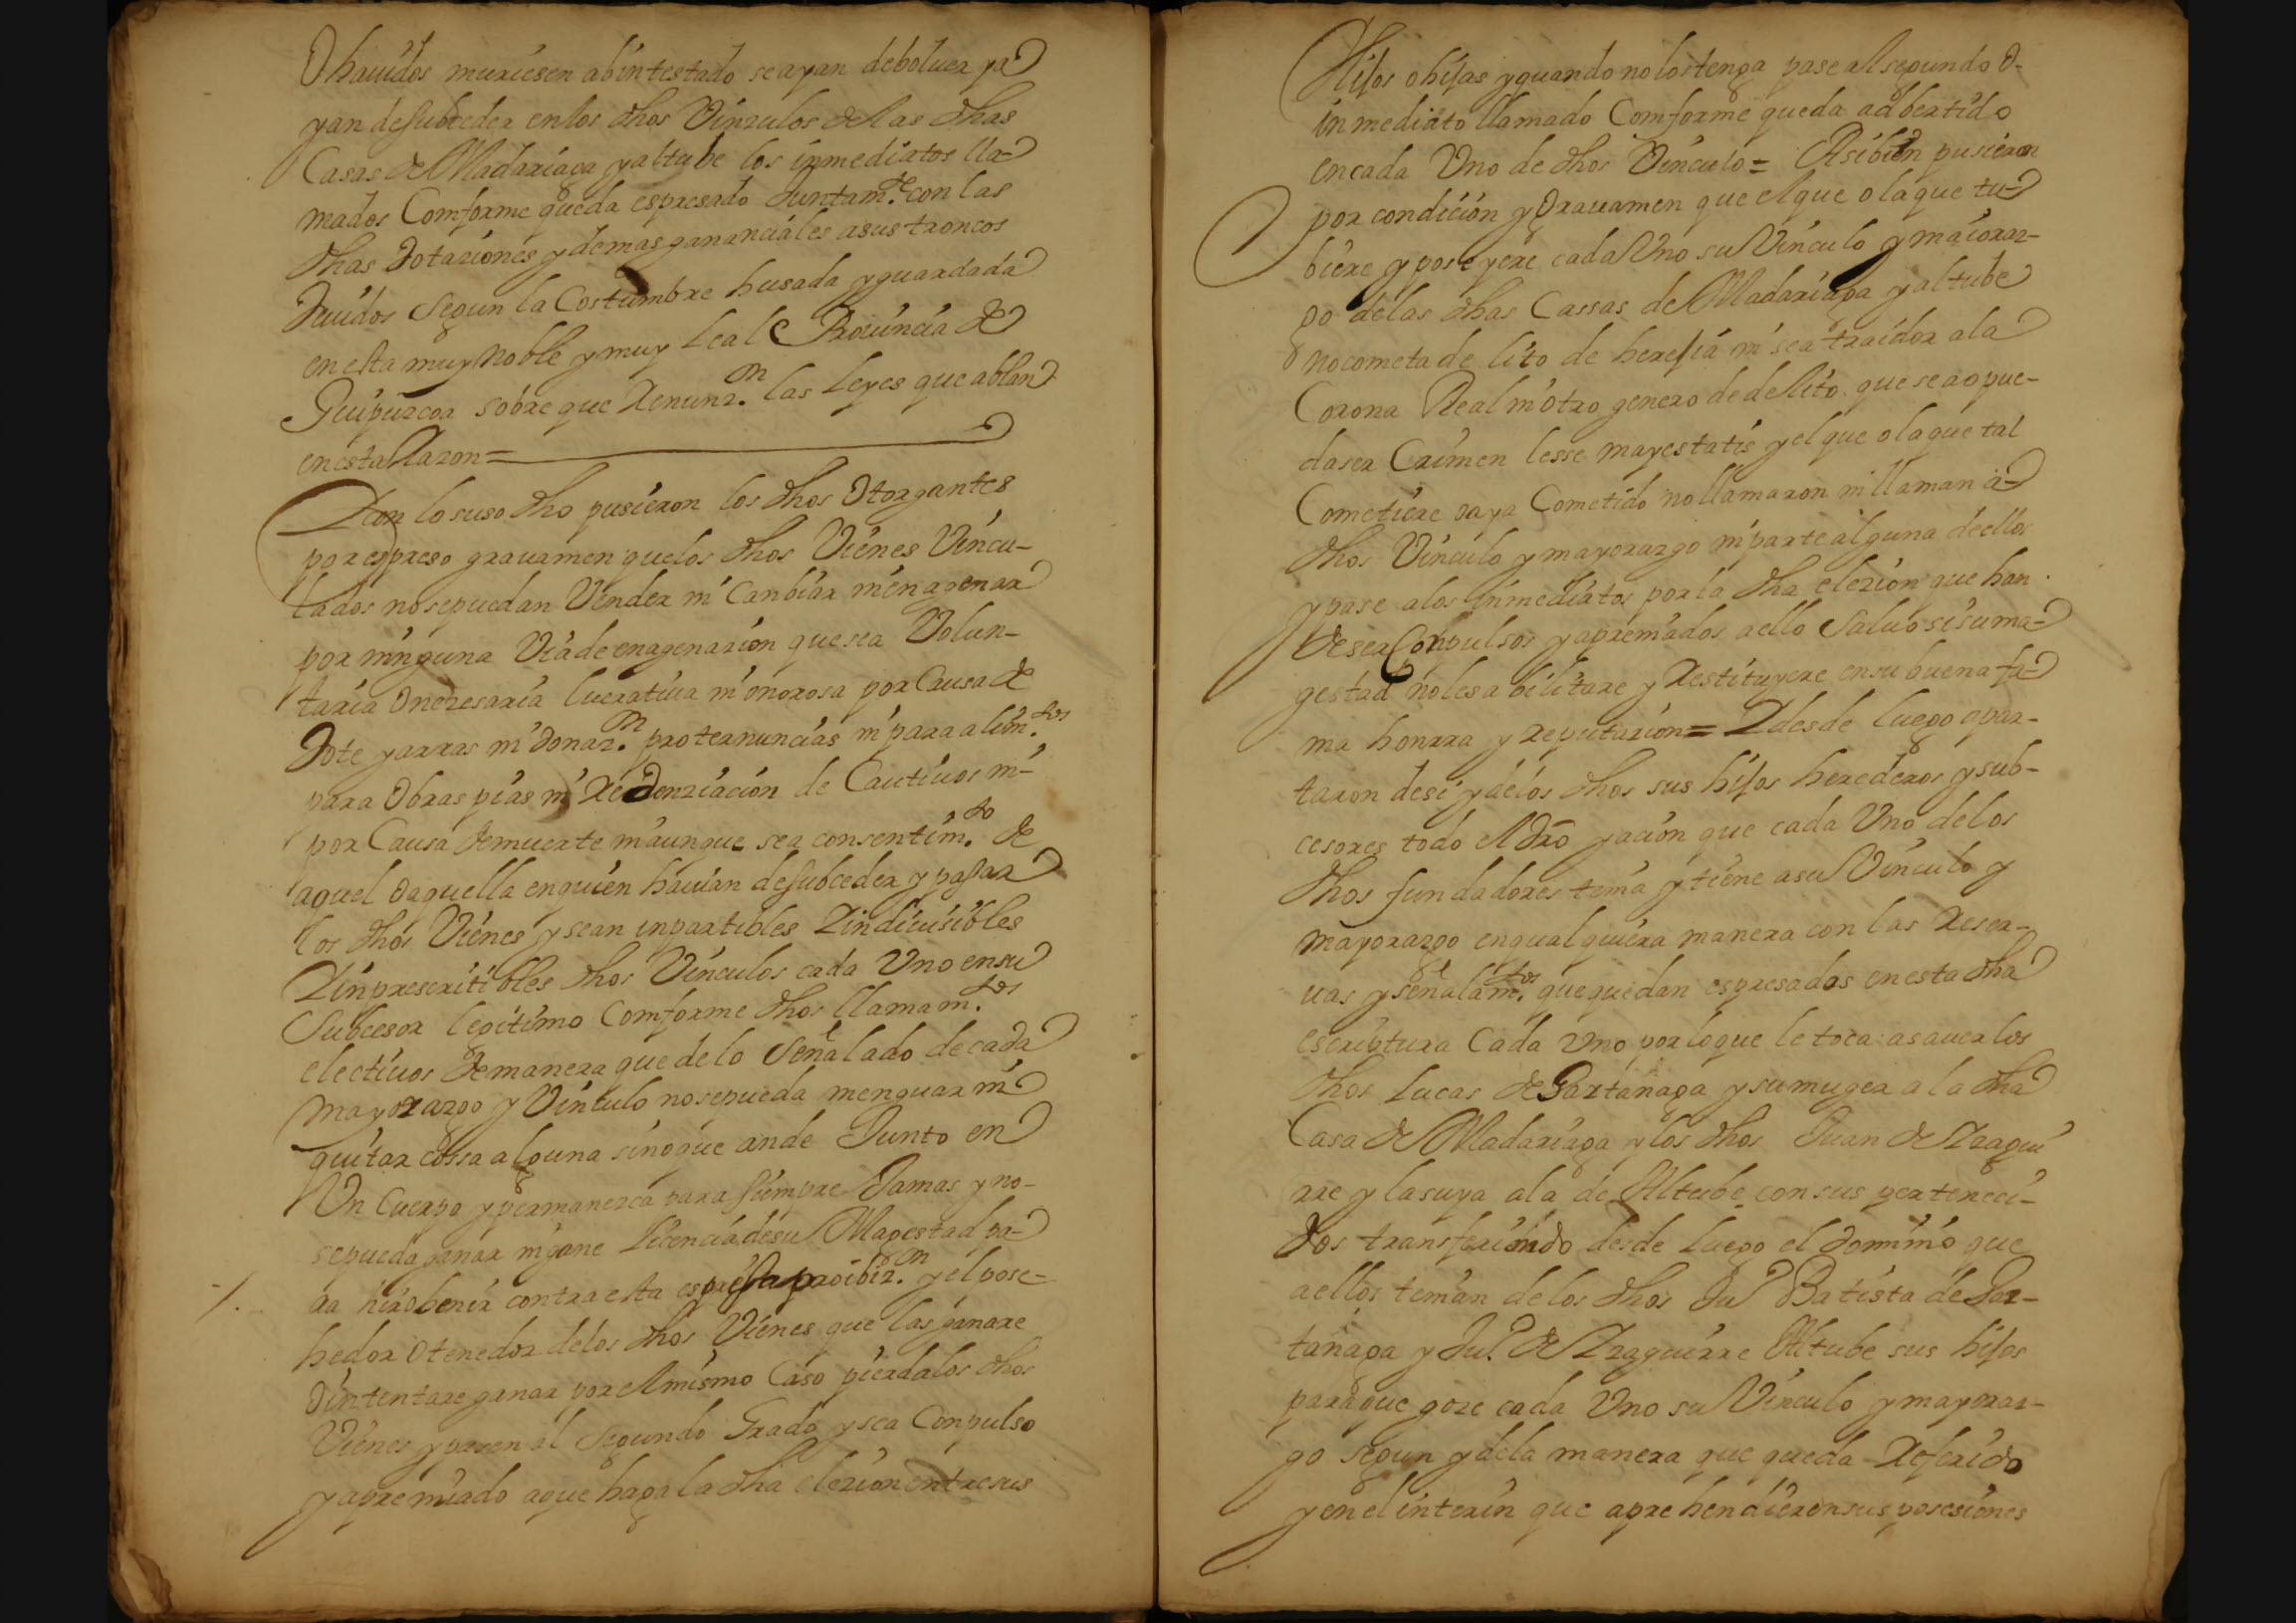 O hauidos muriesen abintestado se ayan debolver ya
yan desubceder en los dhos Vinzulos de las dhas
Casas de Madariaga y altube los inmediatos lla-
mados Comforme queda espresado Juntam.te con las
dhas Dotaziones y demas gananciales a sus troncos
Deuidos Segun la Costumbre husada y guardada
en esta muy Noble y muy Leal Prouincia de
Guipuzcoa sobre que Renunz.on las Leyes que ablan
en esta Razon=
Y con lo suso dho pusieron los dhos Otorgantes
por espreso grauamen que los dhos Vienes Vincu-
lados no se puedan Vender ni Canbiar ni enagenar
por ninguna Via de enagenazion que sea Volun-
taria O nezesaria lucratiua ni onorosa por Causa de
Dote y arras ni donaz.on proternuncias ni para alim.tos
para Obras pias ni Redenziacion de Cautiuos ni
por Causa de muerte ni aunque sea consentim.to de
aquel O aquella en quien hauian desubceder y pasar
los dhos Vienes y sean inpartibles Yindiuisibles
Yinprescritibles dhos Vinculos cada Uno en su
Subcesor legitimo Comforme dhos llamam.tos
electiuos de manera que de lo Señalado de cada
mayorazgo y Vinculo no se pueda menguar ni
quitar cossa alguna sino que ande Junto en
Un Cuerpo y permanezca para siempre Jamas y no
se pueda ganar ni gane Licencia de su Magestad pa-
ra hir O benir contra esta espresa proibiz.on y el pose-
hedor O tenedor de los dhos Vienes que las ganare
O intentare ganar por el mismo Caso pierda los dhos
Vienes y pasen al Segundo Grado y sea Conpulso
y apremiado a que haga la dha elezion entre sus
Hijos o hijas y quando no los tenga pase al segundo O-
inmediato llamado Comforme queda adbertido
en cada Uno de dhos Vinculo= Asibien pusieron
por condicion y Grauamen que el que o la que tu-
biere y poseyere cada Uno su Vinculo y maioraz-
go de las dhas Cassas de Madariaga y altube
no cometa delito de heresia ni sea traidor a la
Corona Real ni otro genero de delito que sea o pue-
da ser Crimen lesse mayestatis y el que o la que tal
Cometiere o aya Cometido no llamaron ni llaman a
dhos Vinculo y mayorazgo ni parte alguna de ellos
y pase a los inmediatos por la dha elezion que han
de ser Conpulsos y apremiados a ello Saluo si su ma-
gestad no les abilitare y Restituyere en su buena fa-
ma honrra y Reputazion= Y desde luego apar-
taron de si y de los dhos sus hijos herederos y sub-
cesores todo el dro y acion que cada Uno de los
dhos fundadores tenia y tiene a su Vinculo y
mayorazgo en qualquiera manera con las Reser-
uas y señalam.tos que quedan espresados en esta dha
escriptura Cada Uno por lo que le toca: asauer los
dhos Lucas de Gartanaga y su muger a la dha
Casa de Madariaga y los dhos Juan de Yzagui
rre y la suya a la de Altube con sus perteneci-
dos transfiriendo desde luego el dominio que
a ellos tenian de los dhos Ju.o Batista de Gar-
tanaga y Ju.o de Yzaguirre Altube sus hijos
para que goze cada Uno su Vinculo y mayoraz-
go segun y de la manera que queda Referido
y en el interin que aprehendieren sus posesiones